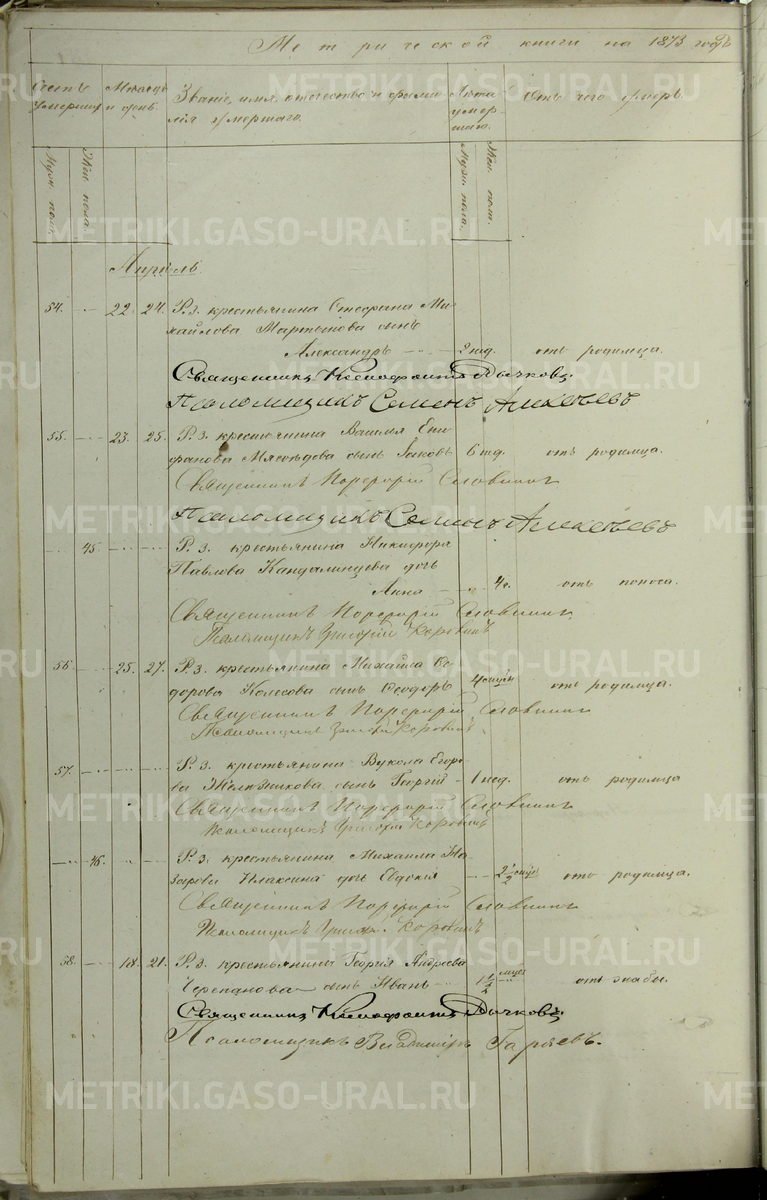 Метрической книги на 1873 годъ
Счетъ умершихъ
Мѣсяцъ и день.
Званіе, имя, отчество и фамилія умершаго.
Лѣта умершаго.
Отъ чего умеръ.
Муж. пола.
Жен. пола.
Муж. пола.
Жен. пола.
Апрѣль
54. 22. 24. Р. з. крестьянина Стефана Михайлова Мартынова сынъ
Александръ 2 нед. отъ родимца.
Священникъ Ксенофонтъ Дычковъ
Псаломщикъ Семенъ Алексѣевъ
55. 23. 25. Р. з. крестьянина Василья Епифанова Мясоѣдова сынъ Іаковъ 6 нед. отъ родимца.
Священникъ Порфирій Словцовъ
Псаломщикъ Семенъ Алексѣевъ
45. Р. з. крестьянина Никифора
Павлова Кандалинцева дочь
Анна 4 г. отъ поноса.
Священникъ Порфирій Словцовъ
Псаломщикъ Григорій Коровинъ
56. 25. 27. Р. з. крестьянина Михайла Ѳедорова Колесова сынъ Ѳеодоръ 4 отъ родимца.
Священникъ Порфирій Словцовъ
Псаломщикъ Григорій Коровинъ
57. Р. з. крестьянина Вукола Егорова сынъ Георгій 1 нед. отъ родимца
Священникъ Порфирій Словцовъ
Псаломщикъ Григорій Коровинъ
46. Р. з. крестьянина Михаила дочь Евдокія 2 1/2 отъ родимца.
Священникъ Порфирій Словцовъ
Псаломщикъ Григорій Коровинъ
58. 18. 21. Р. з. крестьянина Георгія Андреева
Черепанова сынъ Иванъ 1 1/2 отъ жабы.
Священникъ Ксенофонтъ Дычковъ.
Псаломщикъ Владиміръ Гаряевъ.
METRIKI.GASO-URAL.RU